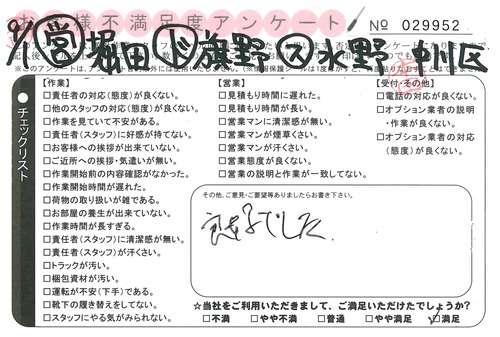 お客様不満足度アンケート No 029952
9/1 営 堀田 ド 旗野 ス 水野 中川区
チェックリスト
【作業】
□責任者の対応(態度)が良くない。
□他のスタッフの対応(態度)が良くない。
□作業を見ていて不安がある。
□責任者(スタッフ)に好感が持てない。
□お客様への挨拶が出来ていない。
□ご近所への挨拶・気遣いが無い。
□作業開始前の内容確認がなかった。
□作業開始時間が遅れた。
□荷物の取り扱いが雑である。
□お部屋の養生が出来ていない。
□作業時間が長すぎる。
□責任者(スタッフ)に清潔感が無い。
□責任者(スタッフ)が汗くさい。
□トラックが汚い。
□梱包資材が汚い。
□運転が不安(下手)である。
□靴下の履き替えをしてない。
□スタッフにやる気がみられない。
【営業】
□見積もり時間に遅れた。
□見積もり時間が長い。
□営業マンに清潔感が無い。
□営業マンが煙草くさい。
□営業マンが汗くさい。
□営業態度が良くない。
□営業の説明と作業が一致してない。
【受付・その他】
□電話の対応が良くない。
□オプション業者の説明
・作業が良くない。
□オプション業者の対応
(態度)が良くない。
その他、ご意見・ご要望等ありましたらお書き下さい。
でした
☆当社をご利用いただきまして、ご満足いただけたでしょうか?
□不満 □やや不満 □普通 □やや満足 ☑満足